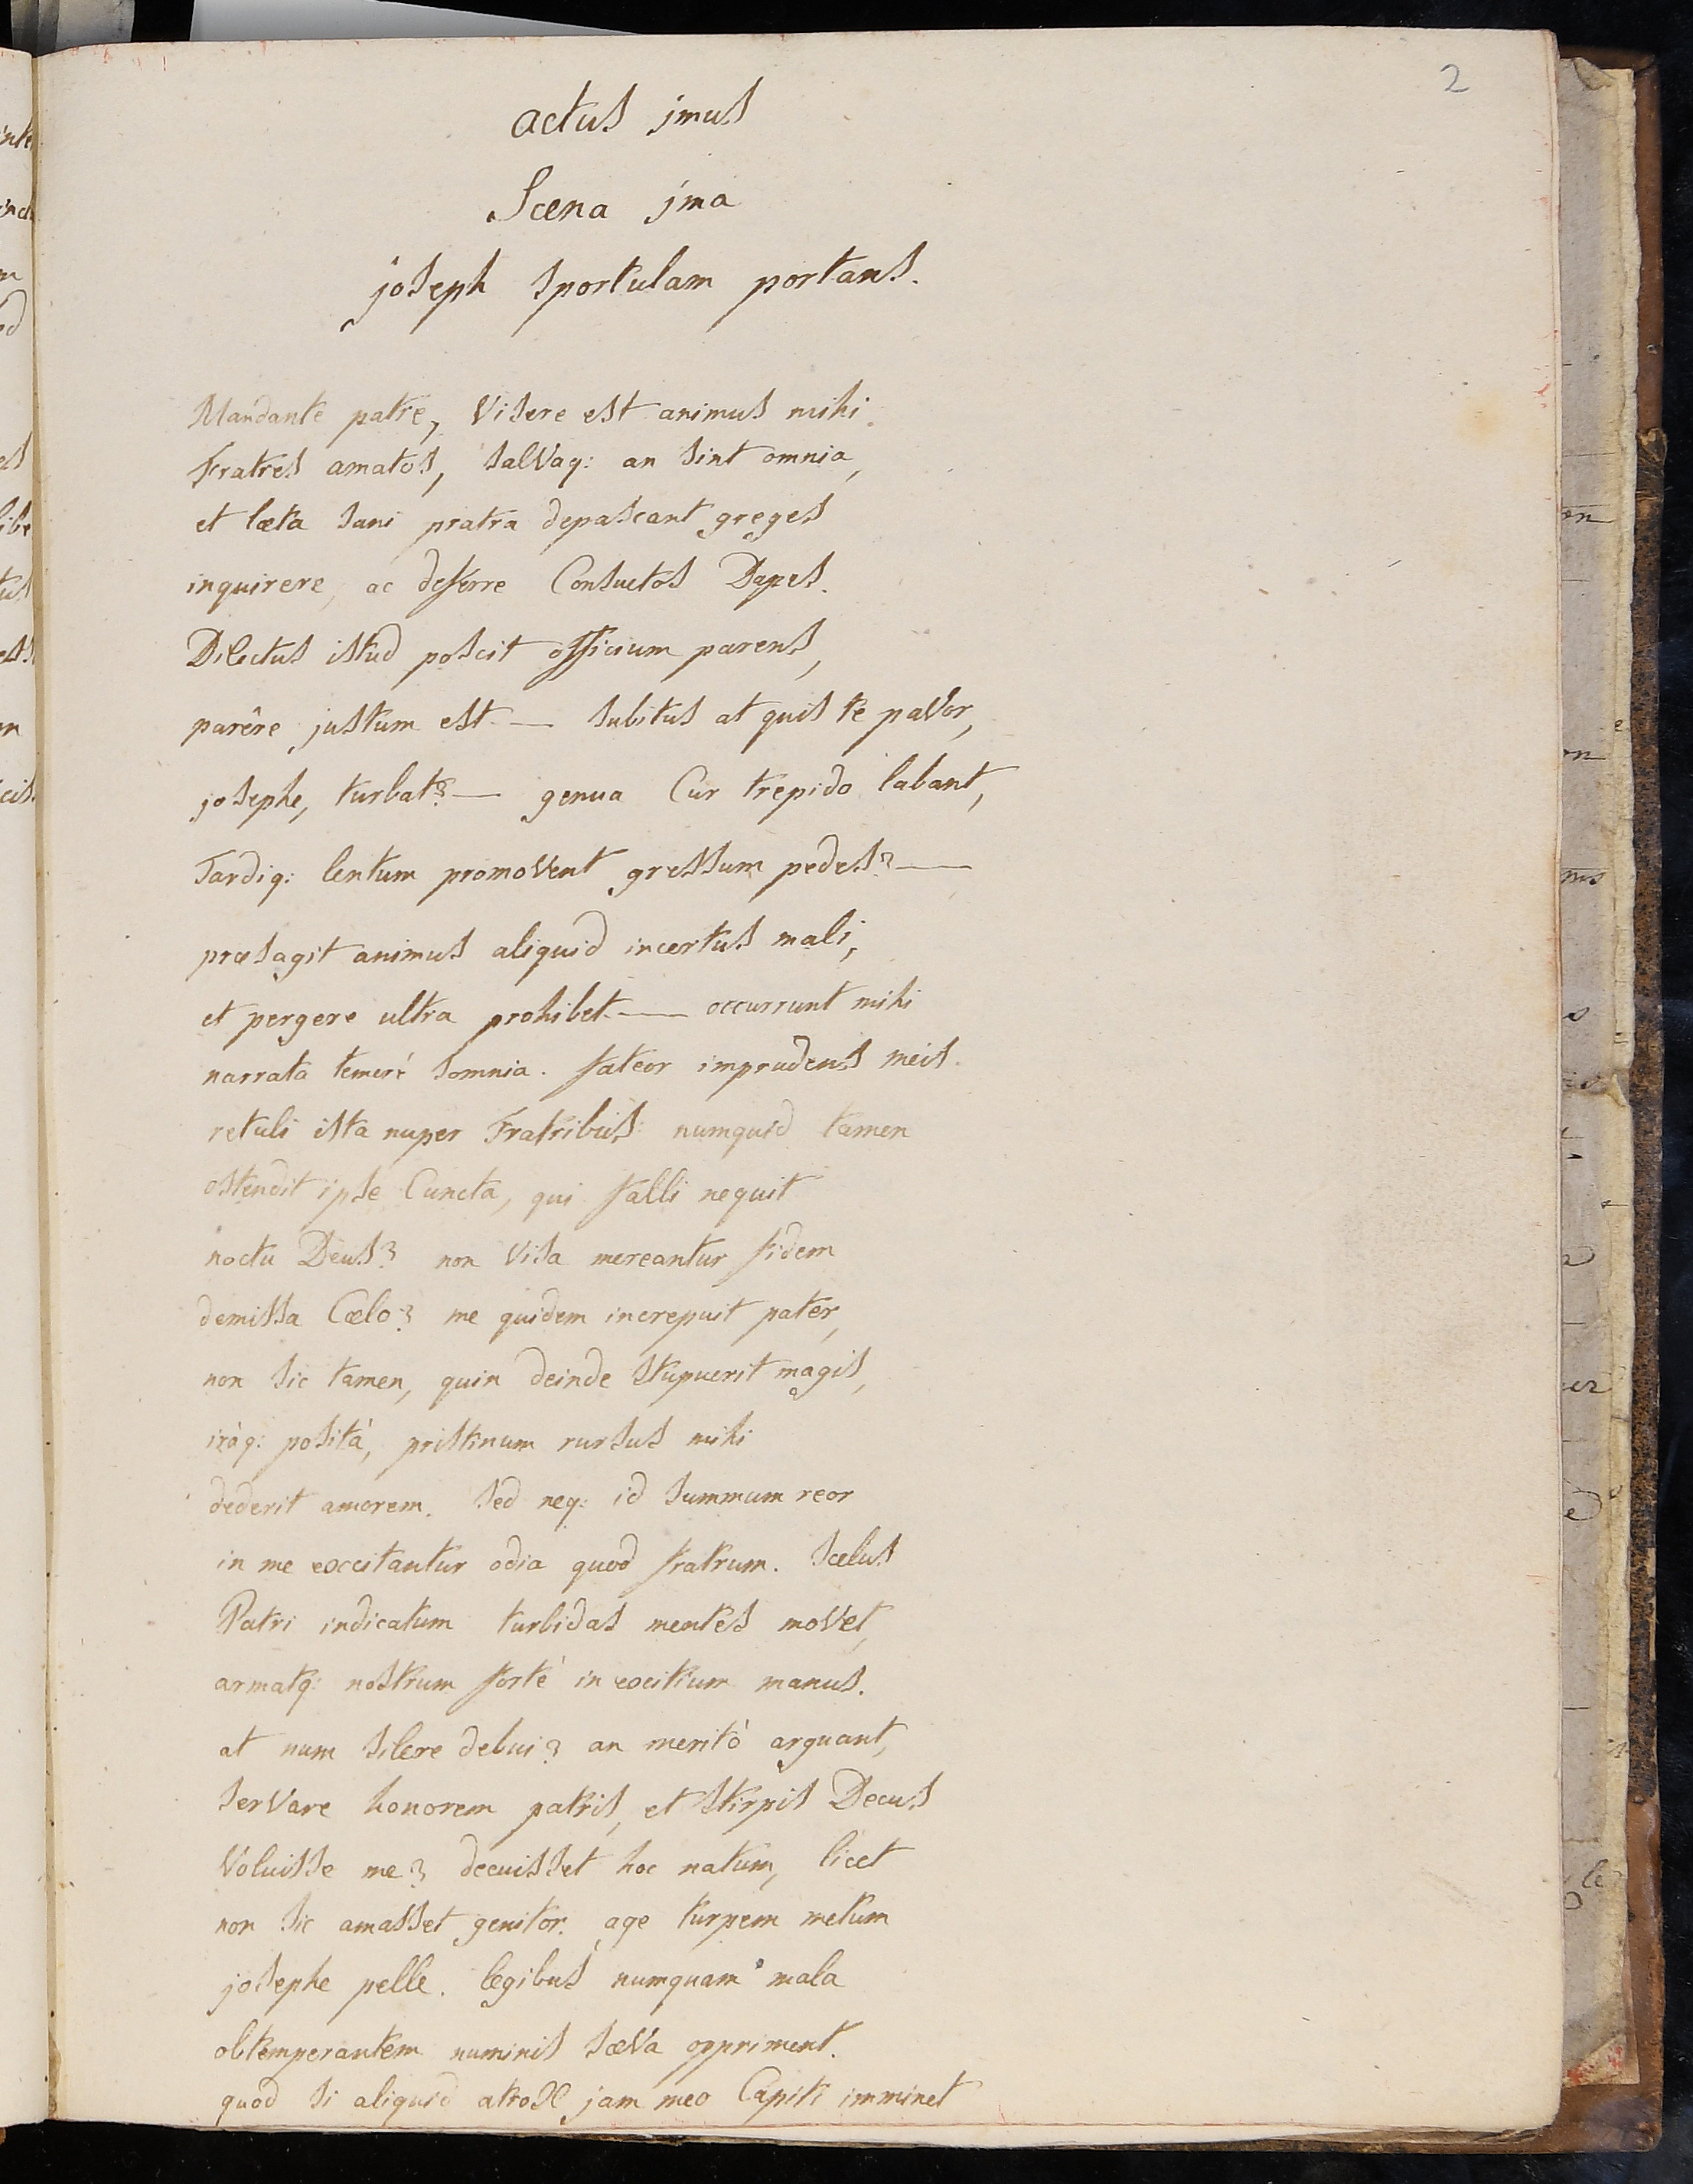 2
actus jmus
Scena jma
joseph sportulam portans.
Mandante patre, Visere est animus mihi
Fratres amatos, salVaq: an sint omnia,
et læta sani pratra depascant greges
inquirere, ac deferre Consuetos Dapes.
Dilectus istud poscit officium parens,
parêre justum est — subitus at quis te paVor,
josephe, turbat? — genua Cur trepido labant,
Tardiq: lentum promoVent gressum pedes? —
præsagit animus aliquid incertus mali,
et pergere ultra prohibet. — occurrunt mihi
narrata temerè somnia. fateor imprudens meis
retuli ista nuper Fratribus: numquid tamen
ostendit ipse Cuncta, qui falli nequit
noctu Deus? non Visa mereantur fidem
demissa Cœlo? me quidem increpuit pater,
non sic tamen, quin deinde stupuerit magis,
iràq: posità, pristinum rursus mihi
dederit amorem. sed neq: id summum reor
in me excitantur odia quod fratrum. scelus
Patri indicatum turbidas mentes moVet,
armatq: nostrum fortè in exitium manus.
at num silere debui? an meritò arguant,
serVare honorem patris, et stirpis Decus
Voluisse me? decuisset hoc natum, licet
non sic amasset genitor. age turpem metum
josephe pelle. legibus numquam mala
obtemperantem numinis sæVa oppriment.
quod si aliquid atrox jam meo Capiti imminet